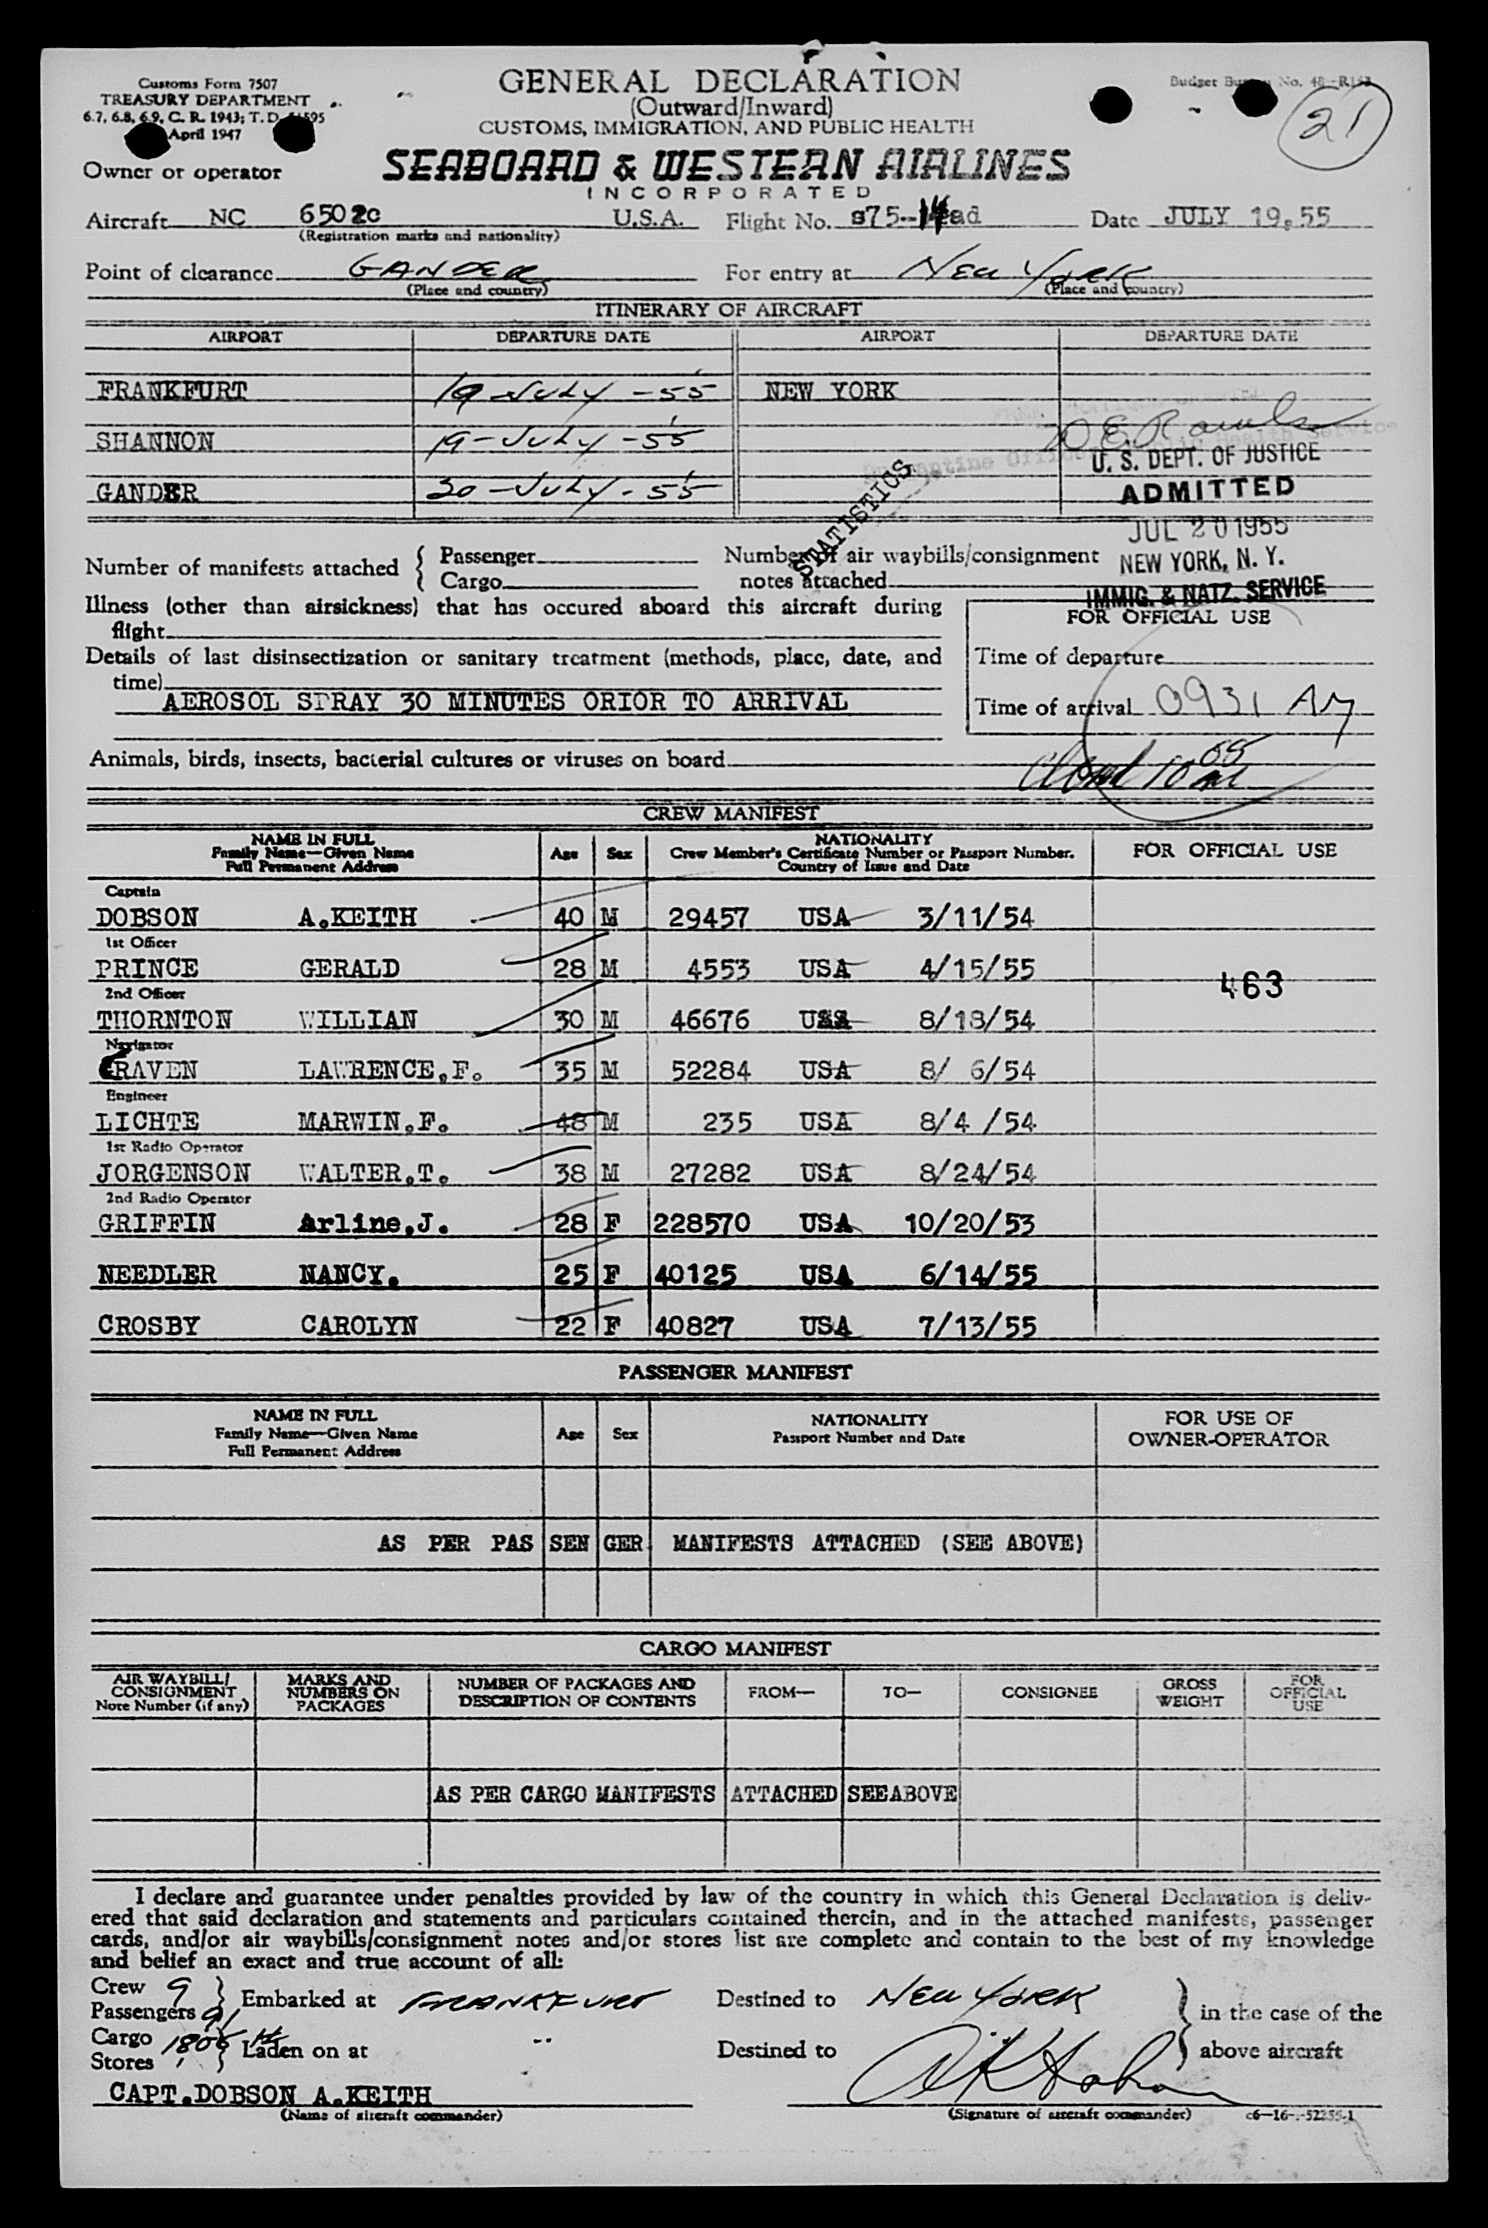 Customs Form 7507
TREASURY DEPARTMENT
6.7, 6.8, 6.9, C. R. 1943; T. D.
April 1947
GENERAL DECLARATION
(Outward/Inward)
CUSTOMS, IMMIGRATION, AND PUBLIC HEALTH
Budget No.
21
Owner or operator
SEABOARD & WESTERN AIRLINES
INCORPORATED
Aircraft NC 6502c U.S.A. Flight No. s75-14ad Date JULY 19, 55
(Registration marks and nationality)
Point of clearance GANDER For entry at New York
(Place and country) (Place and country)
ITINERARY OF AIRCRAFT
AIRPORT DEPARTURE DATE AIRPORT DEPARTURE DATE
FRANKFURT 19-July-55 NEW YORK
SHANNON 19-July-55
GANDER 20-July-55
U. S. DEPT. OF JUSTICE
ADMITTED
JUL 20 1955
NEW YORK, N. Y.
IMMIG. & NATZ. SERVICE
STATISTICS
Number of manifests attached { Passenger
Cargo
Number of air waybills/consignment
notes attached
Illness (other than airsickness) that has occured aboard this aircraft during
flight
Details of last disinsectization or sanitary treatment (methods, place, date, and
time)
AEROSOL SPRAY 30 MINUTES ORIOR TO ARRIVAL
FOR OFFICIAL USE
Time of departure
Time of arrival 0931 AM
Animals, birds, insects, bacterial cultures or viruses on board
CREW MANIFEST
NAME IN FULL
Family Name—Given Name
Full Permanent Address
Age Sex
NATIONALITY
Crew Member's Certificate Number or Passport Number.
Country of Issue and Date
FOR OFFICIAL USE
Captain
DOBSON A.KEITH 40 M 29457 USA 3/11/54
1st Officer
PRINCE GERALD 28 M 4553 USA 4/15/55
463
2nd Officer
THORNTON WILLIAN 30 M 46676 USA 8/18/54
Navigator
CRAVEN LAWRENCE,F. 35 M 52284 USA 8/ 6/54
Engineer
LICHTE MARWIN.F. 48 M 235 USA 8/4 /54
1st Radio Operator
JORGENSON WALTER.T. 38 M 27282 USA 8/24/54
2nd Radio Operator
GRIFFIN Arline,J. 28 F 228570 USA 10/20/53
NEEDLER NANCY. 25 F 40125 USA 6/14/55
CROSBY CAROLYN 22 F 40827 USA 7/13/55
PASSENGER MANIFEST
NAME IN FULL
Family Name—Given Name
Full Permanent Address
Age Sex
NATIONALITY
Passport Number and Date
FOR USE OF
OWNER-OPERATOR
AS PER PAS SEN GER MANIFESTS ATTACHED (SEE ABOVE)
CARGO MANIFEST
AIR WAYBILL/
CONSIGNMENT
Note Number (if any)
MARKS AND
NUMBERS ON
PACKAGES
NUMBER OF PACKAGES AND
DESCRIPTION OF CONTENTS
FROM— TO— CONSIGNEE
GROSS
WEIGHT
FOR
OFFICIAL
USE
AS PER CARGO MANIFESTS ATTACHED SEEABOVE
I declare and guarantee under penalties provided by law of the country in which this General Declaration is deliv-
ered that said declaration and statements and particulars contained therein, and in the attached manifests, passenger
cards, and/or air waybills/consignment notes and/or stores list are complete and contain to the best of my knowledge
and belief an exact and true account of all:
Crew 9
Passengers
Embarked at FRANKFURT Destined to New York in the case of the
Cargo
Stores
Laden on at " Destined to above aircraft
CAPT.DOBSON A.KEITH
(Name of aircraft commander) (Signature of aircraft commander)